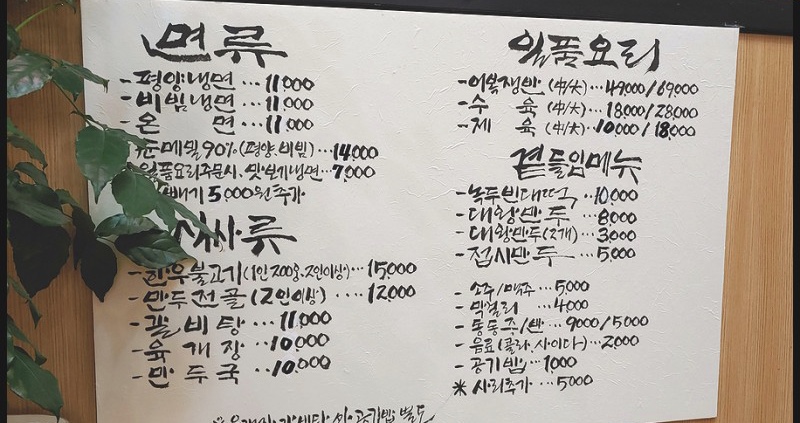 면류
-평양냉면 ... 11,000
-비빔냉면 ... 11,000
-온 면 ... 11,000
순메밀90%(평양.비빔) ... 14,000
일품요리주문시, 맛보기냉면 ... 7,000
곱빼기 5,000원추가
식사류
-한우불고기(1인 200g, 2인이상) ... 15,000
-만두전골(2인이상) .... 12,000
-갈비탕 ... 11,000
-육개장 ... 10,000
-만두국 ... 10,000
일품요리
-어복쟁반(中/大) ... 49,000/69,000
-수 육(中/大) ... 18,000/28,000
-제 육(中/大) ... 10,000/18,000
곁들임메뉴
-녹두빈대떡 ... 10,000
-대왕만두 ... 8,000
-대왕만두(2개) ... 3,000
-접시만두 ... 5,000
-소주/맥주 ... 5,000
-막걸리 ... 4,000
-동동주/반 ... 9000/5000
-음료(콜라,사이다) ... 2,000
-공기밥 ... 1,000
※사리추가 ... 5000
공기밥 별도